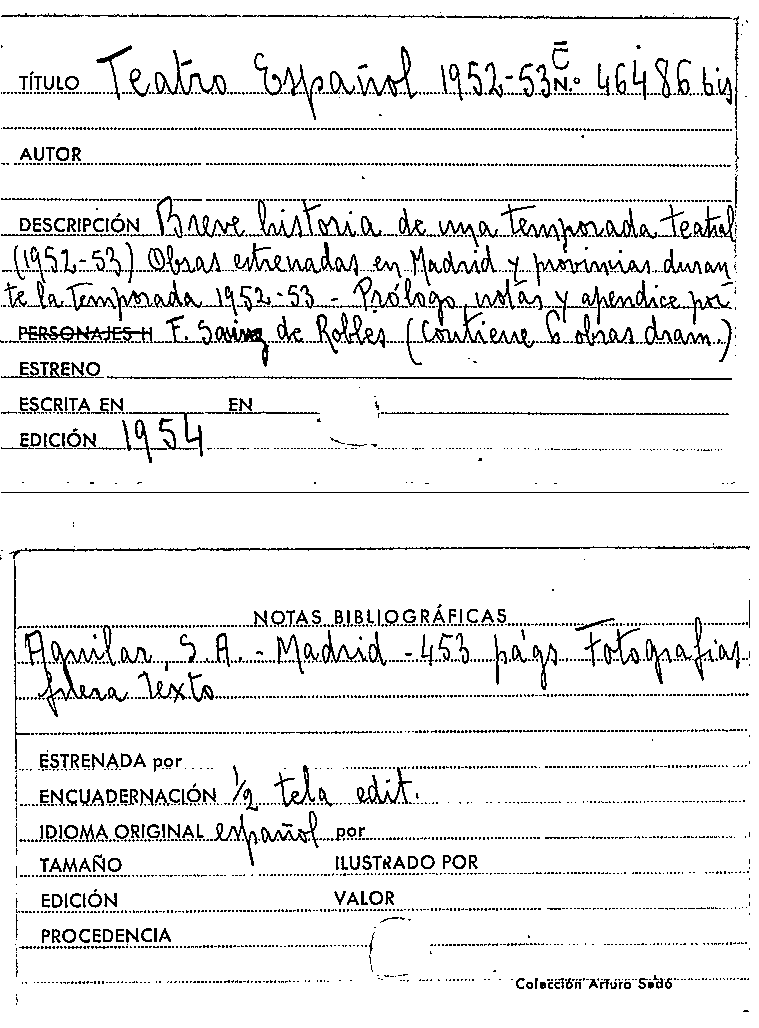 TÍTULO Teatro Español 1952-53 C N.º 46486 bis
AUTOR
DESCRIPCIÓN Breve historia de una temporada teatral
(1952-53) Obras estrenadas en Madrid y provincias duran
te la temporada 1952-53 - Prólogo, notas y apendice por
PERSONAJES H F. Sainz de Robles (Contiene 6 obras dram.)
ESTRENO
ESCRITA EN EN
EDICIÓN 1954
NOTAS BIBLIOGRÁFICAS
Aguilar, S.A. - Madrid - 453 págs Fotografias
fuera Texto
ESTRENADA por
ENCUADERNACIÓN 1/2 tela edit.
IDIOMA ORIGINAL español por
TAMAÑO ILUSTRADO POR
EDICIÓN VALOR
PROCEDENCIA
Colección Arturo Sedó